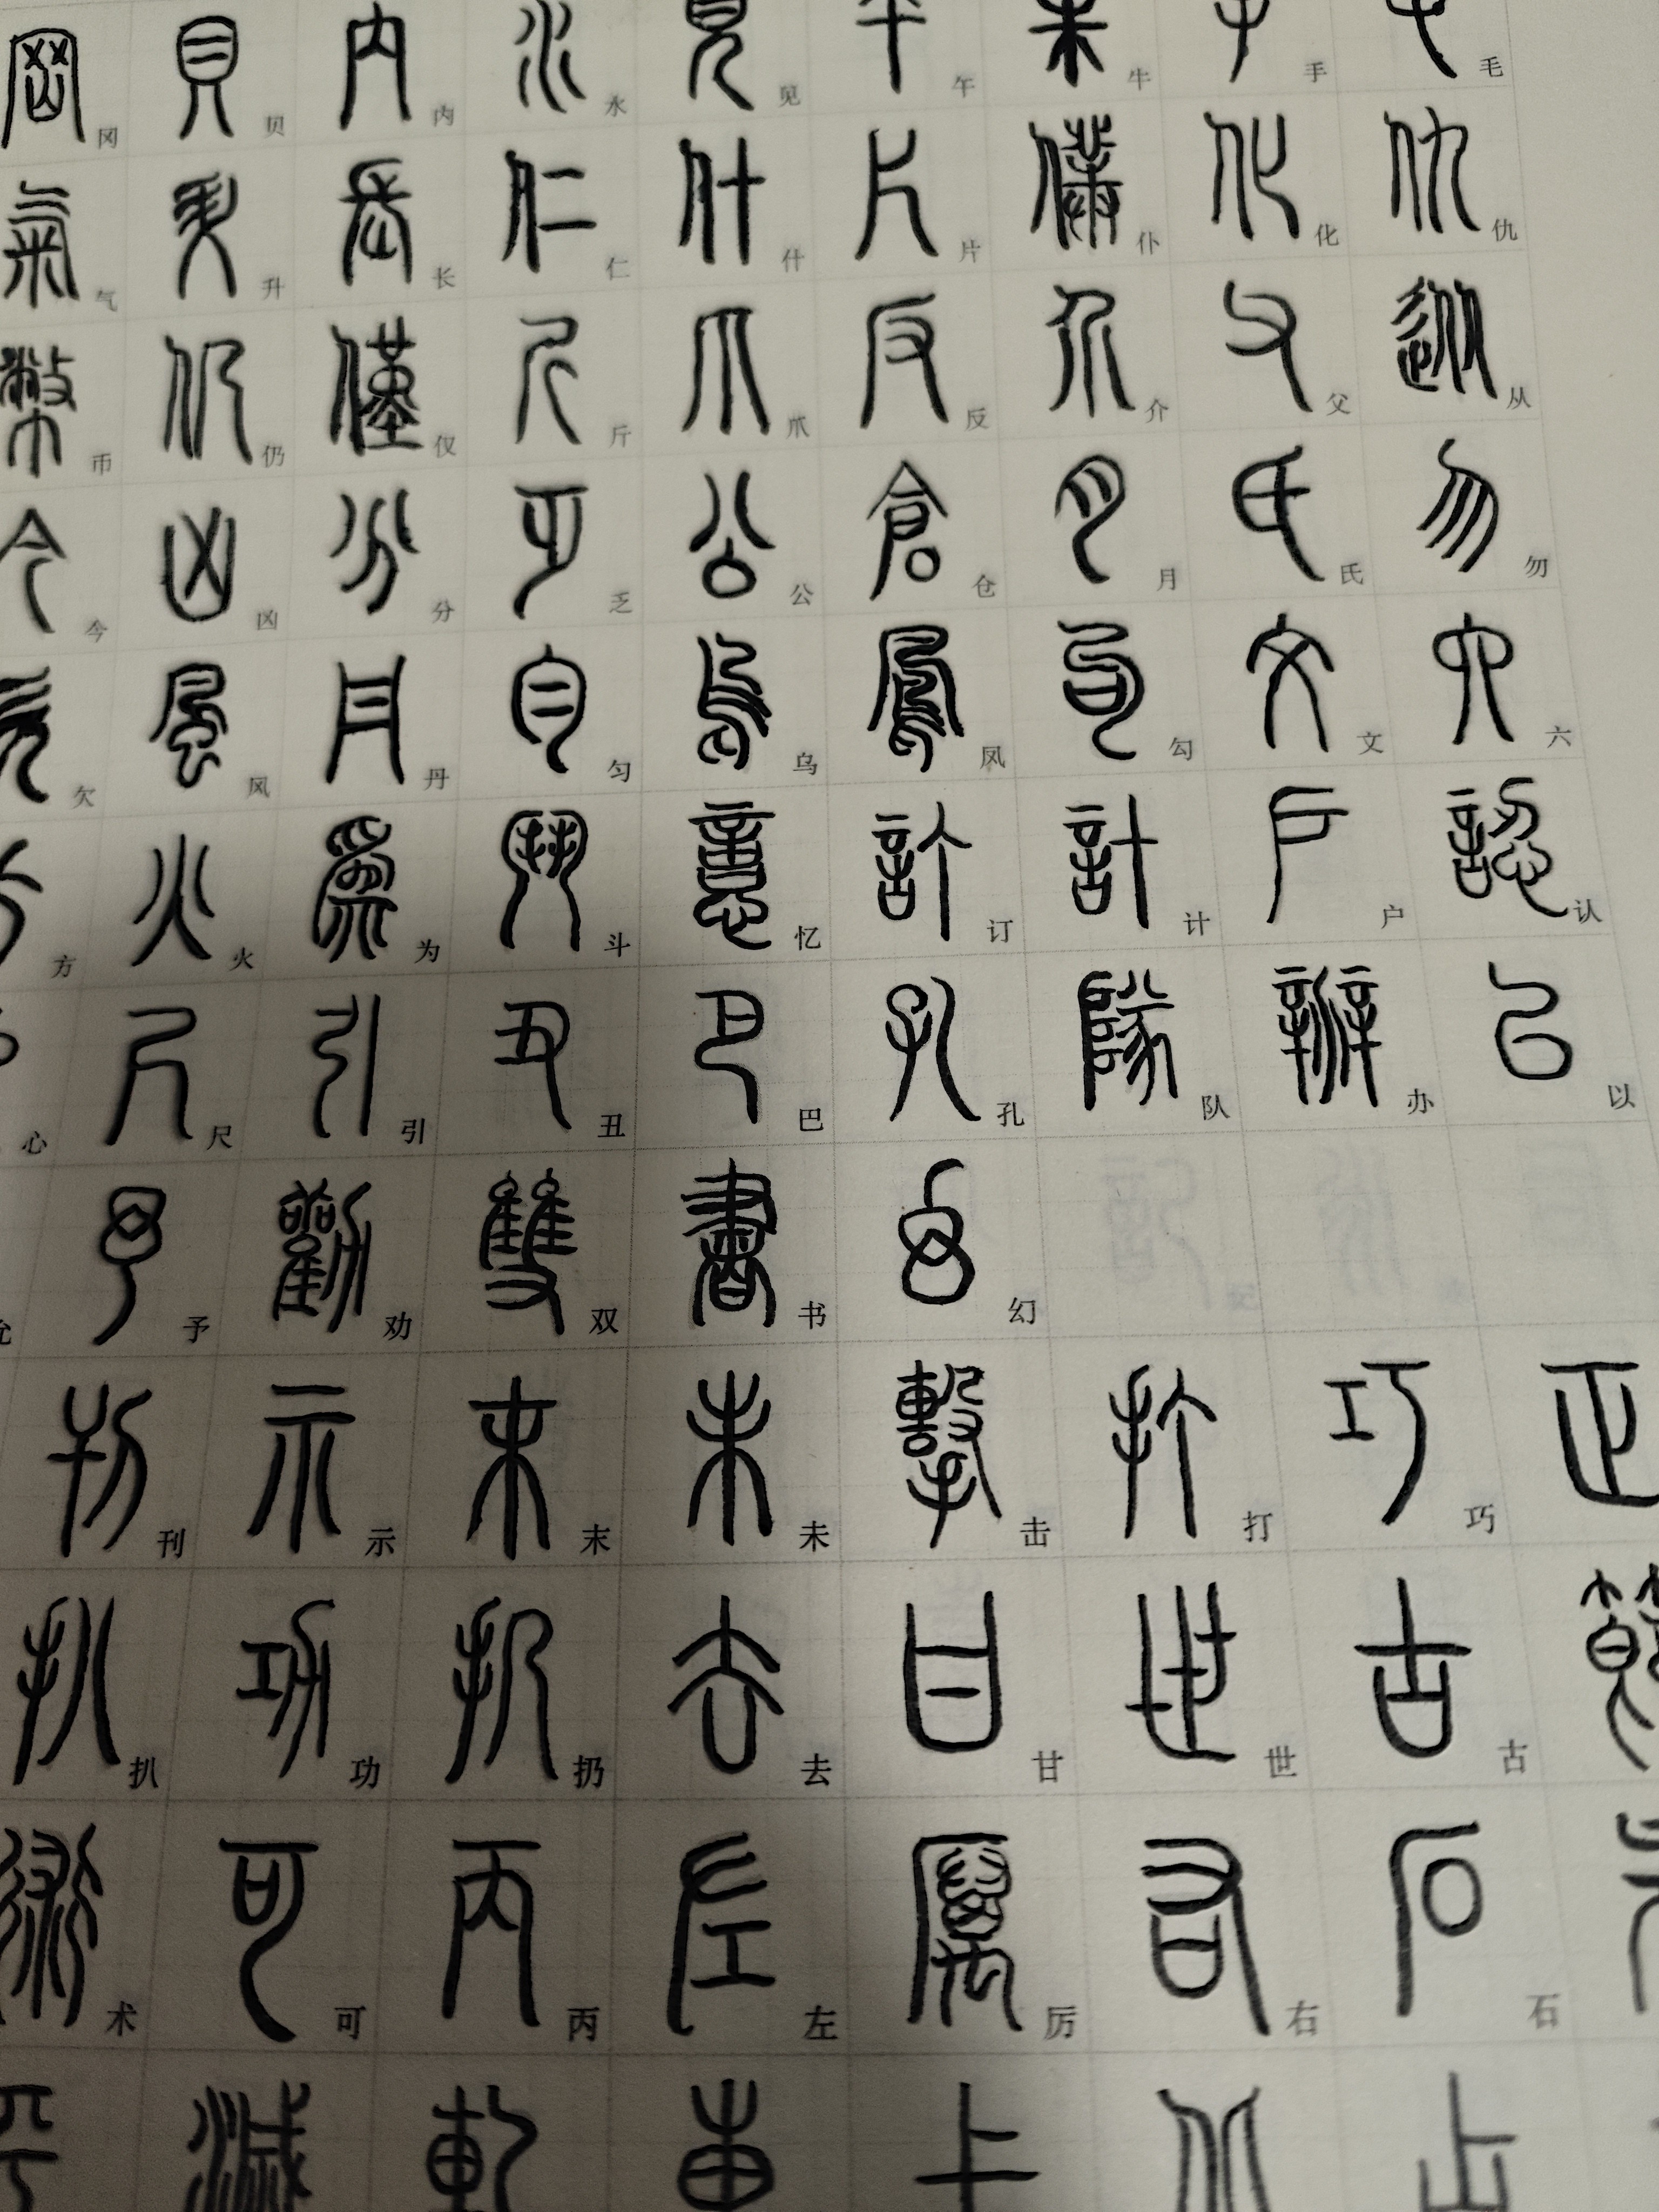 冈 贝 内 水 见 午 牛 手 毛
气 升 长 仁 什 片 仆 化 仇
币 仍 仅 斤 爪 反 介 父 从
今 凶 分 乏 公 仓 月 氏 勿
欠 风 丹 匀 乌 凤 勾 文 六
方 火 为 斗 忆 订 计 户 认
心 尺 引 丑 巴 孔 队 办 以
允 予 劝 双 书 幻
刊 示 末 未 击 打 巧 正
扒 功 扔 去 甘 世 古
术 可 丙 左 厉 右 石
平 灭 轧 上